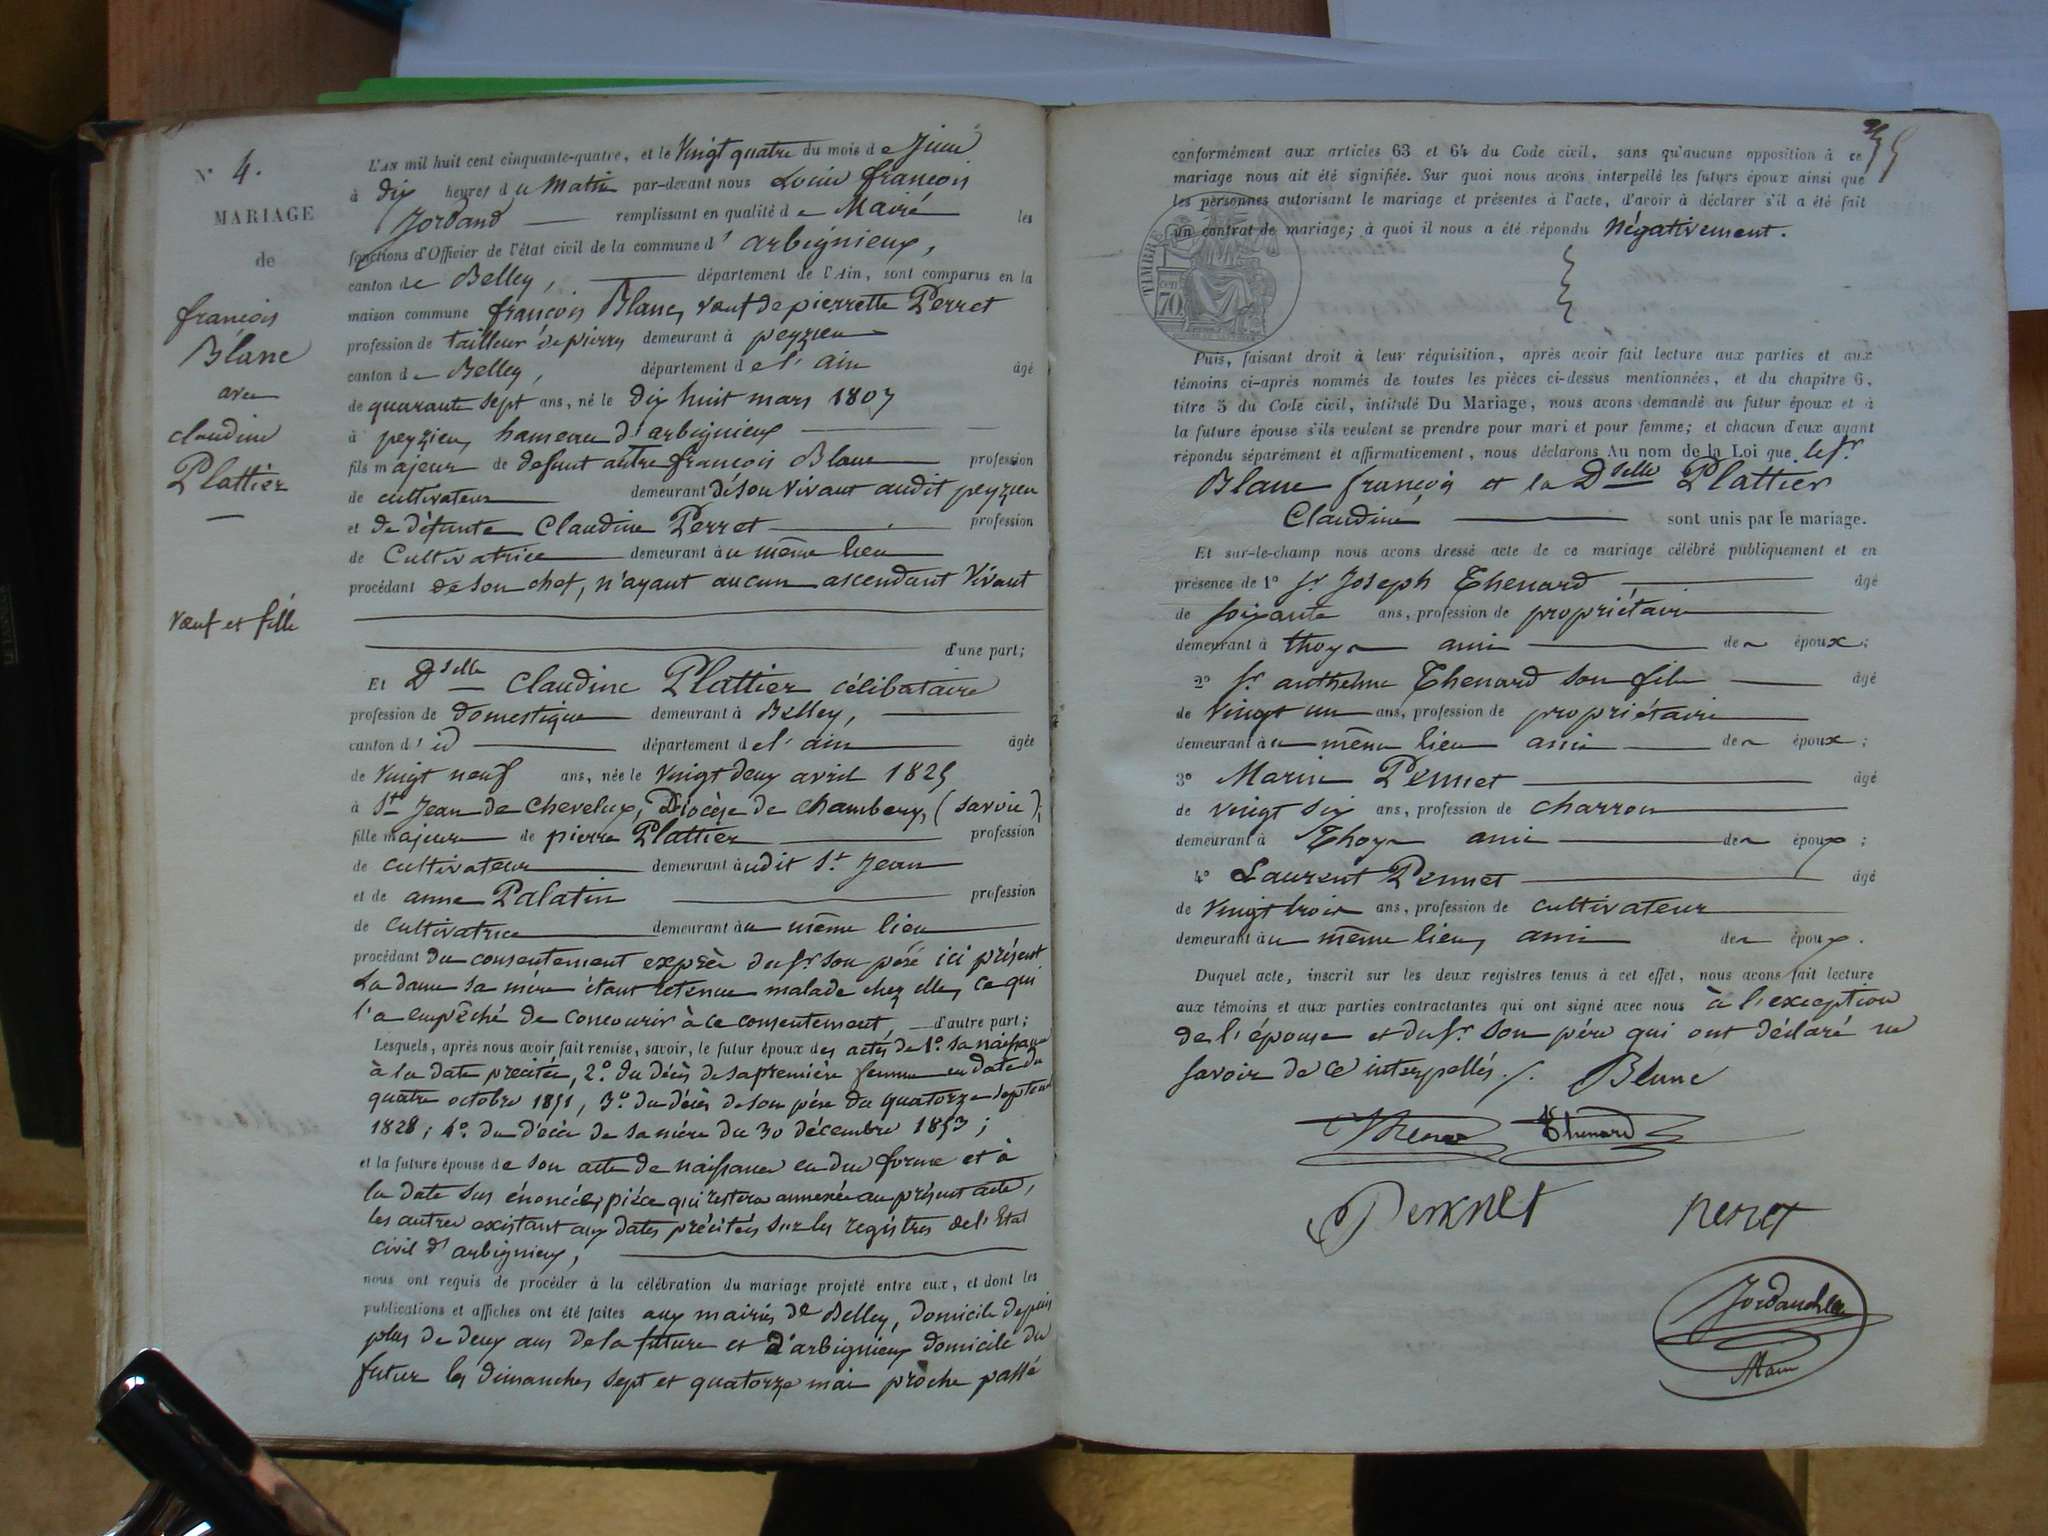 N° 4.
MARIAGE
de
françois
Blanc
avec
claudine
Plattier
veuf et fille
L'AN mil huit cent cinquante-quatre, et le Vingt quatre du mois de Juin
à dix heures du Matin par-devant nous Louis françois
Jordand remplissant en qualité de Maire les
fonctions d'Officier de l'état civil de la commune d'arbignieux,
canton de Belley, département de l'Ain, sont comparus en la
maison commune françois Blanc, veuf de pierrette Perret
profession de tailleur de pierres demeurant à peyzieu
canton de Belley, département de l'ain âgé
de quarante sept ans, né le dix huit mars 1807
à peyzieu, hameau d'arbignieux
fils majeur de defunt autre françois Blanc profession
de cultivateur demeurant de son vivant audit peyzieu
et de défunte Claudine Perret profession
de Cultivatrice demeurant au même lieu
procédant de son chef, n'ayant aucun ascendant Vivant
d'une part;
Et Dselle Claudine Plattier célibataire
profession de domestique demeurant à Belley,
canton d'id département de l'ain âgée
de Vingt neuf ans, née le Vingt deux avril 1825
à St Jean de Chevelux, Diocèse de Chambery, (savoie);
fille majeure de pierre Plattier profession
de cultivateur demeurant audit St Jean
et de anne Palatin profession
de cultivatrice demeurant au même lieu
procédant du consentement exprès du sr son père ici présent
La dame sa mère étant retenue malade chez elle, ce qui
l'a empêché de concourir à ce consentement, d'autre part;
Lesquels, après nous avoir fait remise, savoir, le futur époux des actes de 1° sa naissance
à la date précitée, 2° du décès de sa première femme en date du
quatre octobre 1851, 3° du décès de son père du quatorze septembre
1828; 4° du décès de sa mère du 30 décembre 1853;
et la future épouse de son acte de naissance en due forme et à
la date sus énoncée, pièce qui restera annexée au présent acte,
les autres existant aux dates précitées sur les registres de l'Etat
civil d'arbignieux,
nous ont requis de procéder à la célébration du mariage projeté entre eux, et dont les
publications et affiches ont été faites aux mairies de Belley, domicile depuis
plus de deux ans de la future et d'arbignieux domicile du
futur les dimanches sept et quatorze mai proche passé
conformément aux articles 63 et 64 du Code civil, sans qu'aucune opposition à ce
mariage nous ait été signifiée. Sur quoi nous avons interpellé les futurs époux ainsi que
les personnes autorisant le mariage et présentes à l'acte, d'avoir à déclarer s'il a été fait
un contrat de mariage; à quoi il nous a été répondu Négativement.
TIMBRE
70
Puis, faisant droit à leur réquisition, après avoir fait lecture aux parties et aux
témoins ci-après nommés de toutes les pièces ci-dessus mentionnées, et du chapitre 6,
titre 5 du Code civil, intitulé Du Mariage, nous avons demandé au futur époux et à
la future épouse s'ils veulent se prendre pour mari et pour femme; et chacun d'eux ayant
répondu séparément et affirmativement, nous déclarons Au nom de la Loi que le sr
Blanc françois et la Dselle Plattier
Claudine sont unis par le mariage.
Et sur-le-champ nous avons dressé acte de ce mariage célébré publiquement et en
présence de 1° sr Joseph Thenard âgé
de soixante ans, profession de propriétaire
demeurant à thoys ami des époux;
2° sr anthelme Thenard son fils âgé
de vingt un ans, profession de propriétaire
demeurant au même lieu ami des époux;
3° Marin Pennet âgé
de vingt six ans, profession de charron
demeurant à Thoys ami des époux;
4° Laurent Pennet âgé
de Vingt trois ans, profession de cultivateur
demeurant au même lieu, ami des époux.
Duquel acte, inscrit sur les deux registres tenus à cet effet, nous avons fait lecture
aux témoins et aux parties contractantes qui ont signé avec nous à l'exception
de l'épouse et du sr son père qui ont déclaré ne
savoir de ce interpellés.
Blanc
Thenard